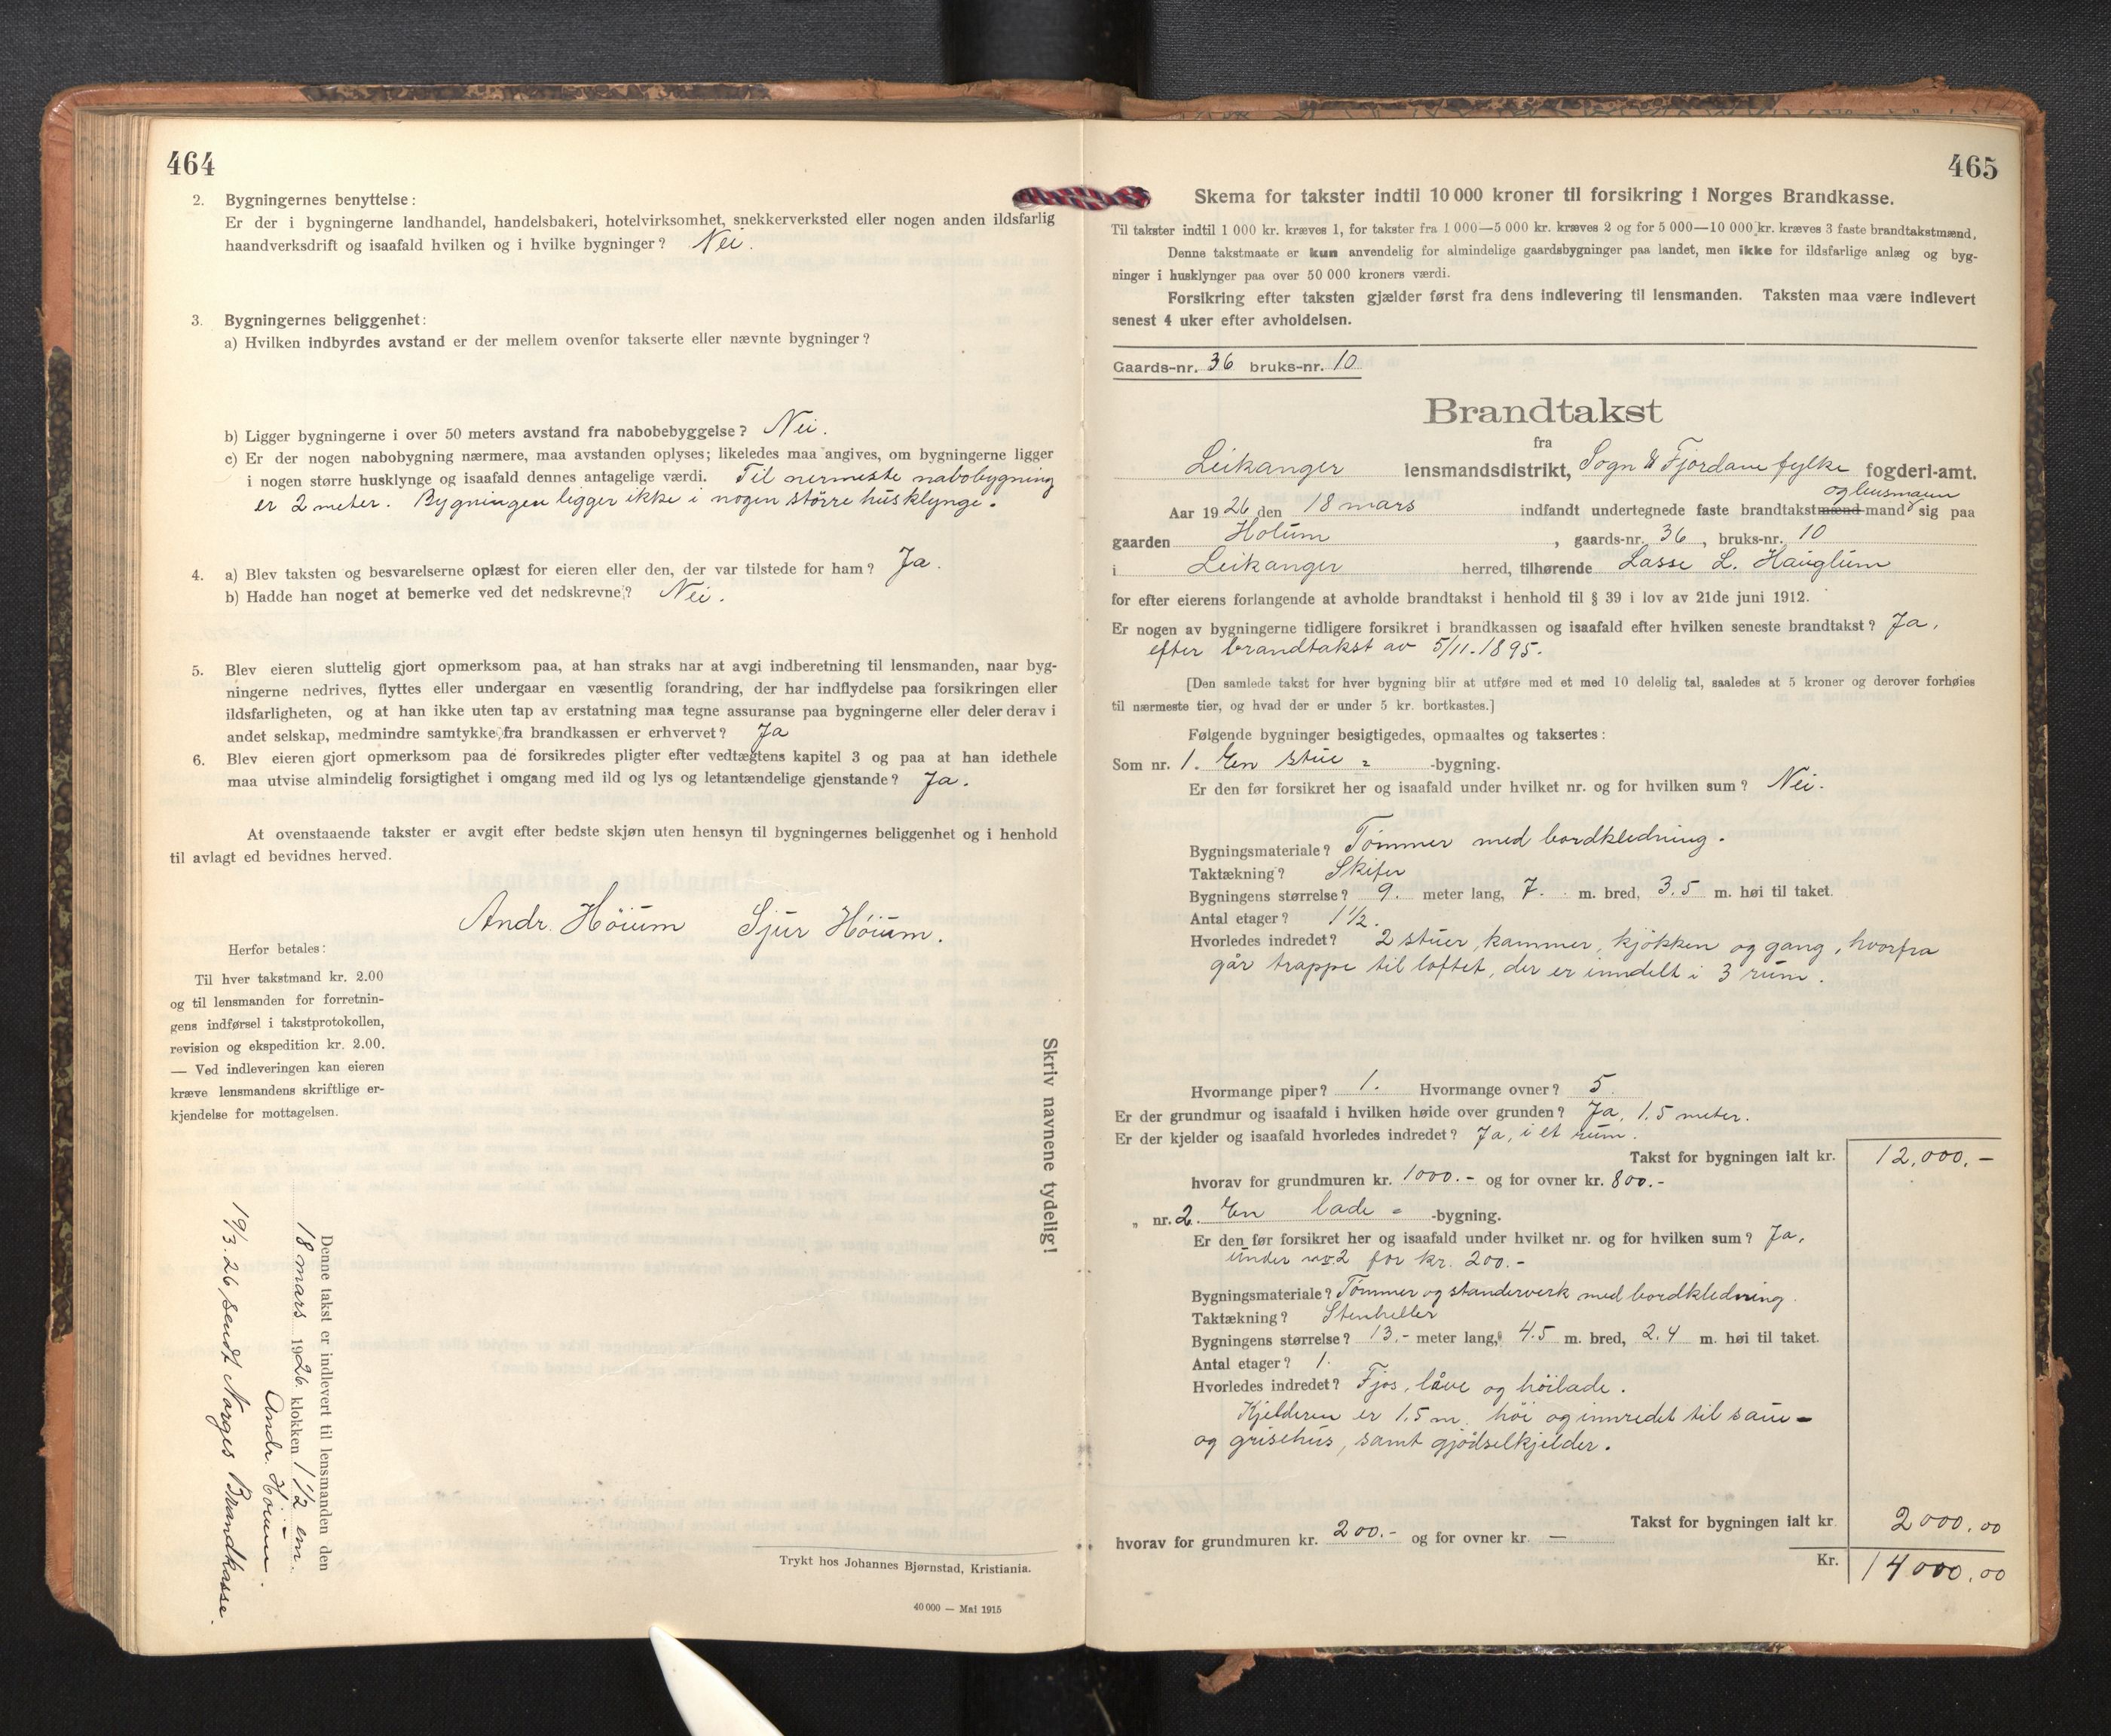 464
2. Bygningernes benyttelse:
Er der i bygningerne landhandel, handelsbakeri, hotelvirksomhet, snekkerverksted eller nogen anden ildsfarlig
haandverksdrift og isaafald hvilken og i hvilke bygninger? Nei.
3. Bygningernes beliggenhet:
a) Hvilken indbyrdes avstand er der mellem ovenfor takserte eller nævnte bygninger?
b) Ligger bygningerne i over 50 meters avstand fra nabobebyggelse? Nei.
c) Er der nogen nabobygning nærmere, maa avstanden oplyses; likeledes maa angives, om bygningerne ligger
i nogen større husklynge og isaafald dennes antagelige værdi. Til nermeste nabobygning
er 2 meter. Bygningen ligger ikke i nogen större husklynge.
4. a) Blev taksten og besvarelserne oplæst for eieren eller den, der var tilstede for ham? Ja.
b) Hadde han noget at bemerke ved det nedskrevne? Nei.
5. Blev eieren sluttelig gjort opmerksom paa, at han straks har at avgi indberetning til lensmanden, naar byg-
ningerne nedrives, flyttes eller undergaar en væsentlig forandring, der har indflydelse paa forsikringen eller
ildsfarligheten, og at han ikke uten tap av erstatning maa tegne assuranse paa bygningerne eller deler derav i
andet selskap, medmindre samtykke fra brandkassen er erhvervet? Ja
6. Blev eieren gjort opmerksom paa de forsikredes pligter efter vedtægtens kapitel 3 og paa at han idethele
maa utvise almindelig forsigtighet i omgang med ild og lys og letantændelige gjenstande? Ja.
At ovenstaaende takster er avgit efter bedste skjøn uten hensyn til bygningernes beliggenhet og i henhold
til avlagt ed bevidnes herved.
Andr. Höium Sjur Höium.
Herfor betales:
Til hver takstmand kr. 2.00
og til lensmanden for forretnin-
gens indførsel i takstprotokollen,
revision og ekspedition kr. 2.00.
— Ved indleveringen kan eieren
kræve lensmandens skriftlige er-
kjendelse for mottagelsen.
Skriv navnene tydelig!
Denne takst er indlevert til lensmanden den
18 mars 1926 klokken 1 1/2 em.
Andr. Höium.
19/3.26 sendt Norges Brandkasse.
Trykt hos Johannes Bjørnstad, Kristiania.
40 000 — Mai 1915
465
Skema for takster indtil 10 000 kroner til forsikring i Norges Brandkasse.
Til takster indtil 1 000 kr. kræves 1, for takster fra 1 000—5 000 kr. kræves 2 og for 5 000—10 000 kr. kræves 3 faste brandtakstmænd.
Denne takstmaate er kun anvendelig for almindelige gaardsbygninger paa landet, men ikke for ildsfarlige anlæg og byg-
ninger i husklynger paa over 50 000 kroners værdi.
Forsikring efter taksten gjælder først fra dens indlevering til lensmanden. Taksten maa være indlevert
senest 4 uker efter avholdelsen.
Gaards-nr. 36 bruks-nr. 10
Brandtakst
fra
Leikanger lensmandsdistrikt, Sogn & Fjordane fylke fogderi-amt.
og lensmann
Aar 1926 den 18 mars indfandt undertegnede faste brandtakstmænd-mand sig paa
gaarden Holum, gaards-nr. 36, bruks-nr. 10
i Leikanger herred, tilhørende Lasse L. Hauglum
for efter eierens forlangende at avholde brandtakst i henhold til § 39 i lov av 21de juni 1912.
Er nogen av bygningerne tidligere forsikret i brandkassen og isaafald efter hvilken seneste brandtakst? Ja,
efter brandtakst av 5/11.1895.
[Den samlede takst for hver bygning blir at utføre med et med 10 delelig tal, saaledes at 5 kroner og derover forhøies
til nærmeste tier, og hvad der er under 5 kr. bortkastes.]
Følgende bygninger besigtigedes, opmaaltes og taksertes:
Som nr. 1. En stue = -bygning.
Er den før forsikret her og isaafald under hvilket nr. og for hvilken sum? Nei.
Bygningsmateriale? Tömmer med bordkledning.
Taktækning? Skifer
Bygningens størrelse? 9. meter lang, 7. m. bred, 3.5 m. høi til taket.
Antal etager? 1 1/2.
Hvorledes indredet? 2 stuer, kammer, kjökken og gang, hvorfra
går trappe til loftet, der er inndelt i 3 rum.
Hvormange piper? 1. Hvormange ovner? 5
Er der grundmur og isaafald i hvilken høide over grunden? Ja, 1.5 meter.
Er der kjelder og isaafald hvorledes indredet? Ja, i et rum.
Takst for bygningen ialt kr. 12,000.-
hvorav for grundmuren kr. 1000.- og for ovner kr. 800.-
„ nr. 2. En lade = -bygning.
Er den før forsikret her og isaafald under hvilket nr. og for hvilken sum? Ja,
under no 2 for kr. 200.-
Bygningsmateriale? Tömmer og standerverk med bordkledning.
Taktækning? Stenheller
Bygningens størrelse? 13.- meter lang, 4.5 m. bred, 2.4 m. høi til taket.
Antal etager? 1.
Hvorledes indredet? Fjøs, låve og höilade.
Kjelderen er 1.5 m. höi og innredet til saue-
og grisehus, samt gjödselkjelder.
Takst for bygningen ialt kr. 2000.00
hvorav for grundmuren kr. 200.- og for ovner kr. —
Kr. 14000.00